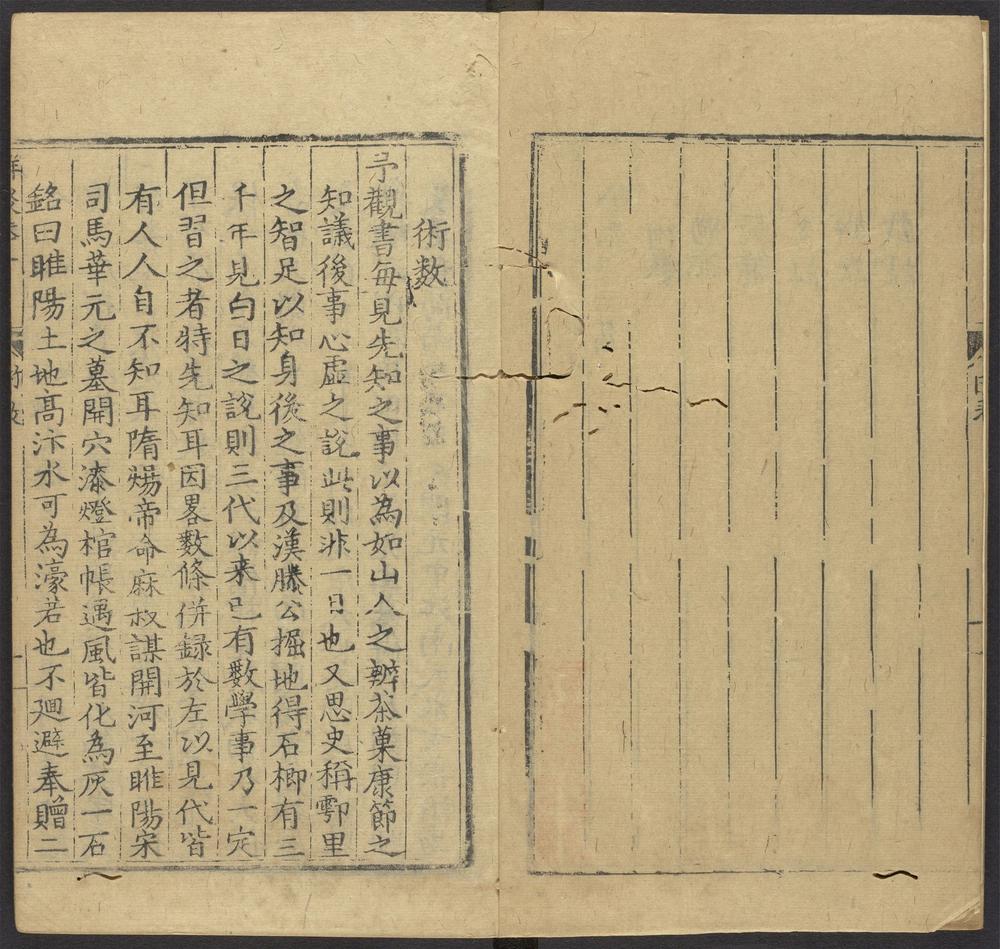 術數
予觀書每見先知之事以為如山人之辨茶菓康節之
知議後事心虛之說此則非一日也又思史稱鄠里
之智足以知身後之事及漢滕公掘地得石槨有三
千年見白日之說則三代以来已有數學事乃一定
但習之者特先知耳因畧數條併録於左以見代皆
有人人自不知耳隋煬帝命麻叔謀開河至睢陽宋
司馬華元之墓開穴漆燈棺帳遇風皆化為灰一石
銘曰睢陽土地高汴水可為濠若也不廻避奉贈二